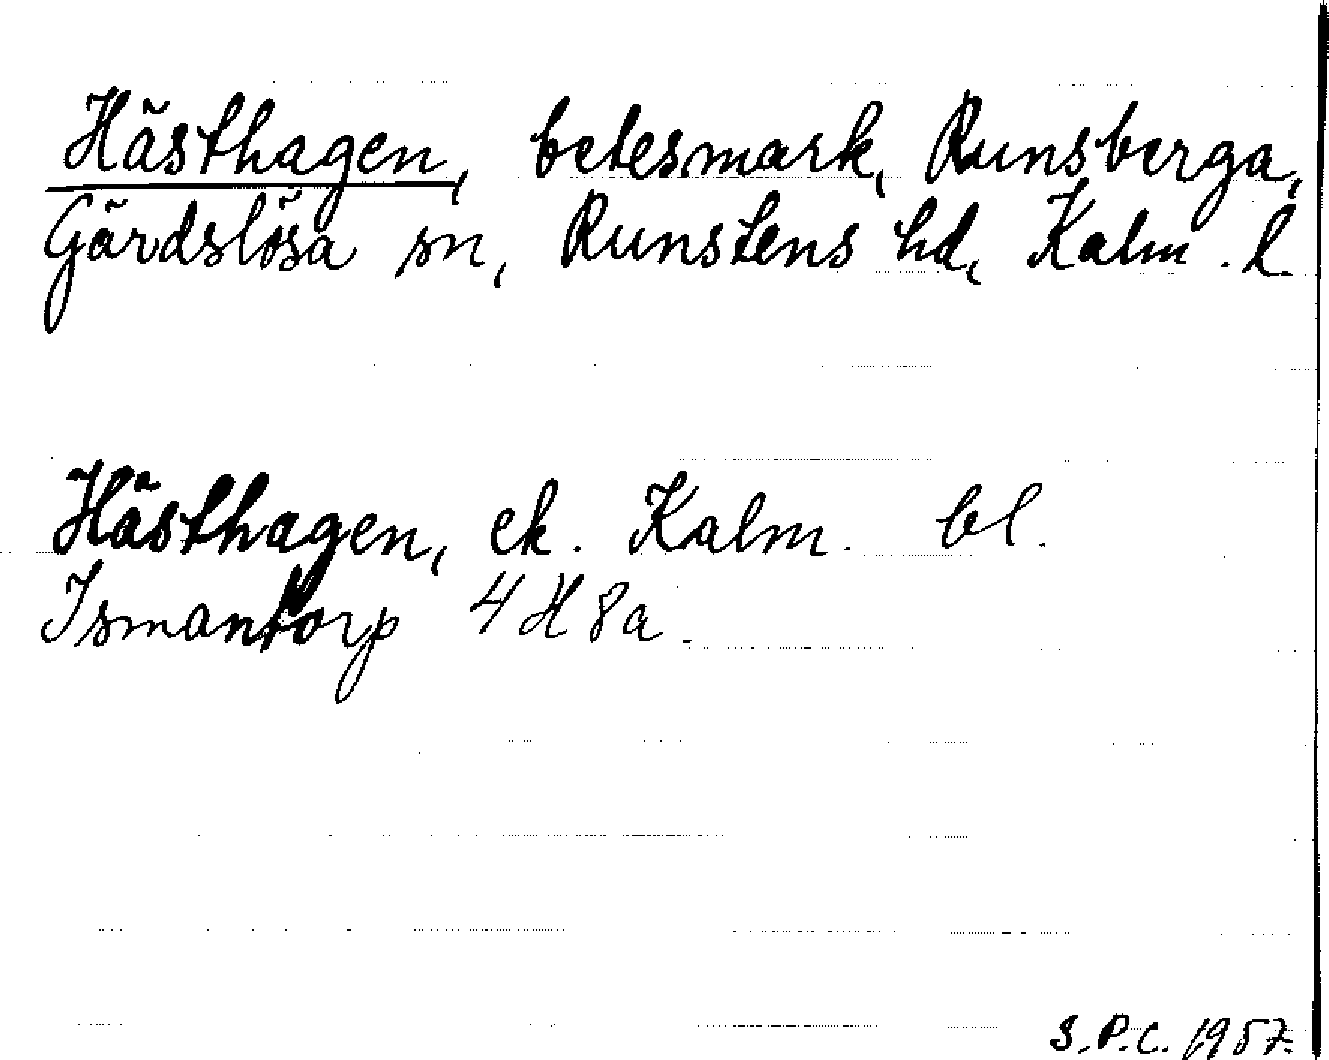 Hästhagen, betesmark, Runsberga,
Gärdslösa sn, Runstens hd, Kalm. l.
Hästhagen, ek. Kalm. bl.
Ismantorp 4 H 8a.
S.P.C. 1957.